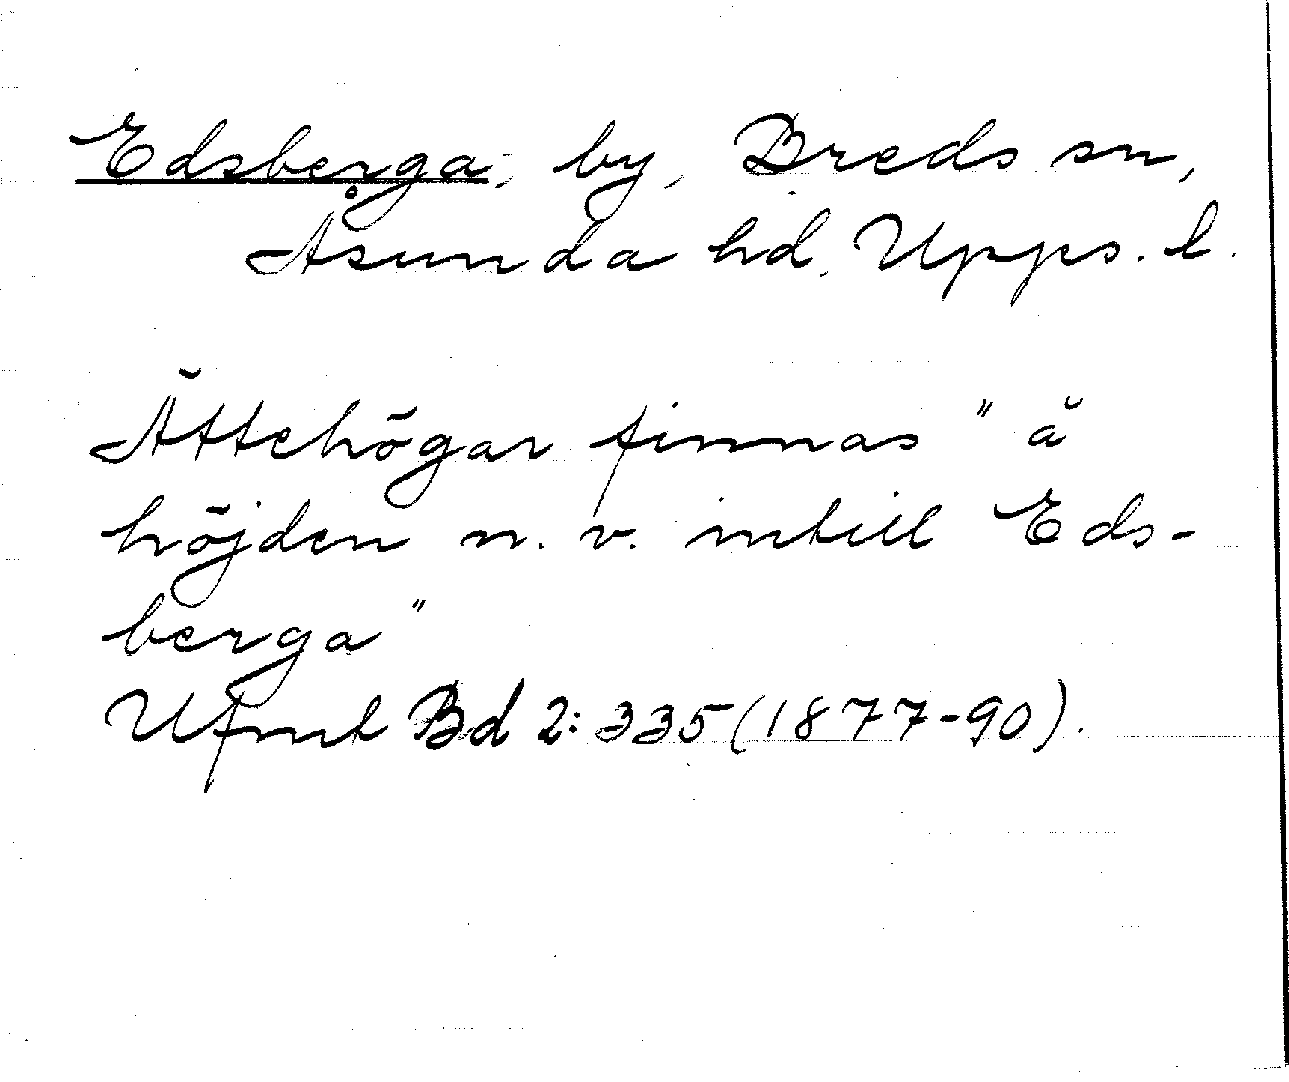 Edsberga, by, Breds sn,
Åsunda hd, Upps. l.
Ättehögar finnas "å
höjden n. v. intill Eds-
berga"
Ufmt Bd 2: 335 (1877-90).